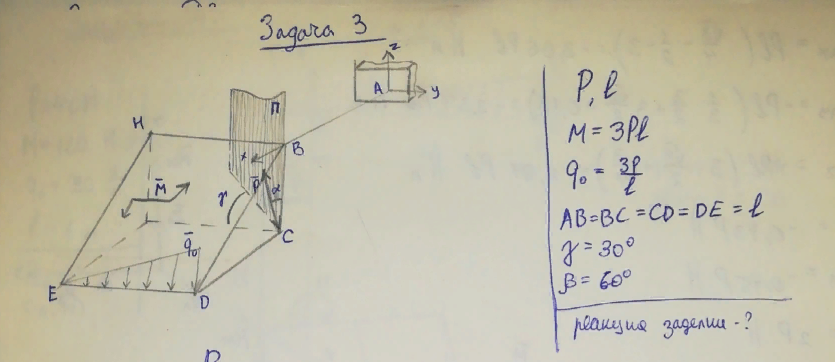 Задача 3
z
A
y
П
H
B
x
M̄
γ
P̄
α
C
q̄₀
E
D
P, l
M = 3Pl
q₀ = 3P/l
AB=BC=CD=DE=l
γ = 30°
β = 60°
реакция заделки -?